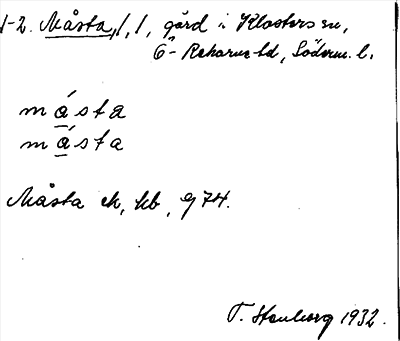 1-2. Måsta, 1, 1, gård i Klosters sn,
Ö-Rekarne hd, Söderm. l.
måsta
måsta
Måsta ek, kb, g 74.
T. Stenborg 1932.